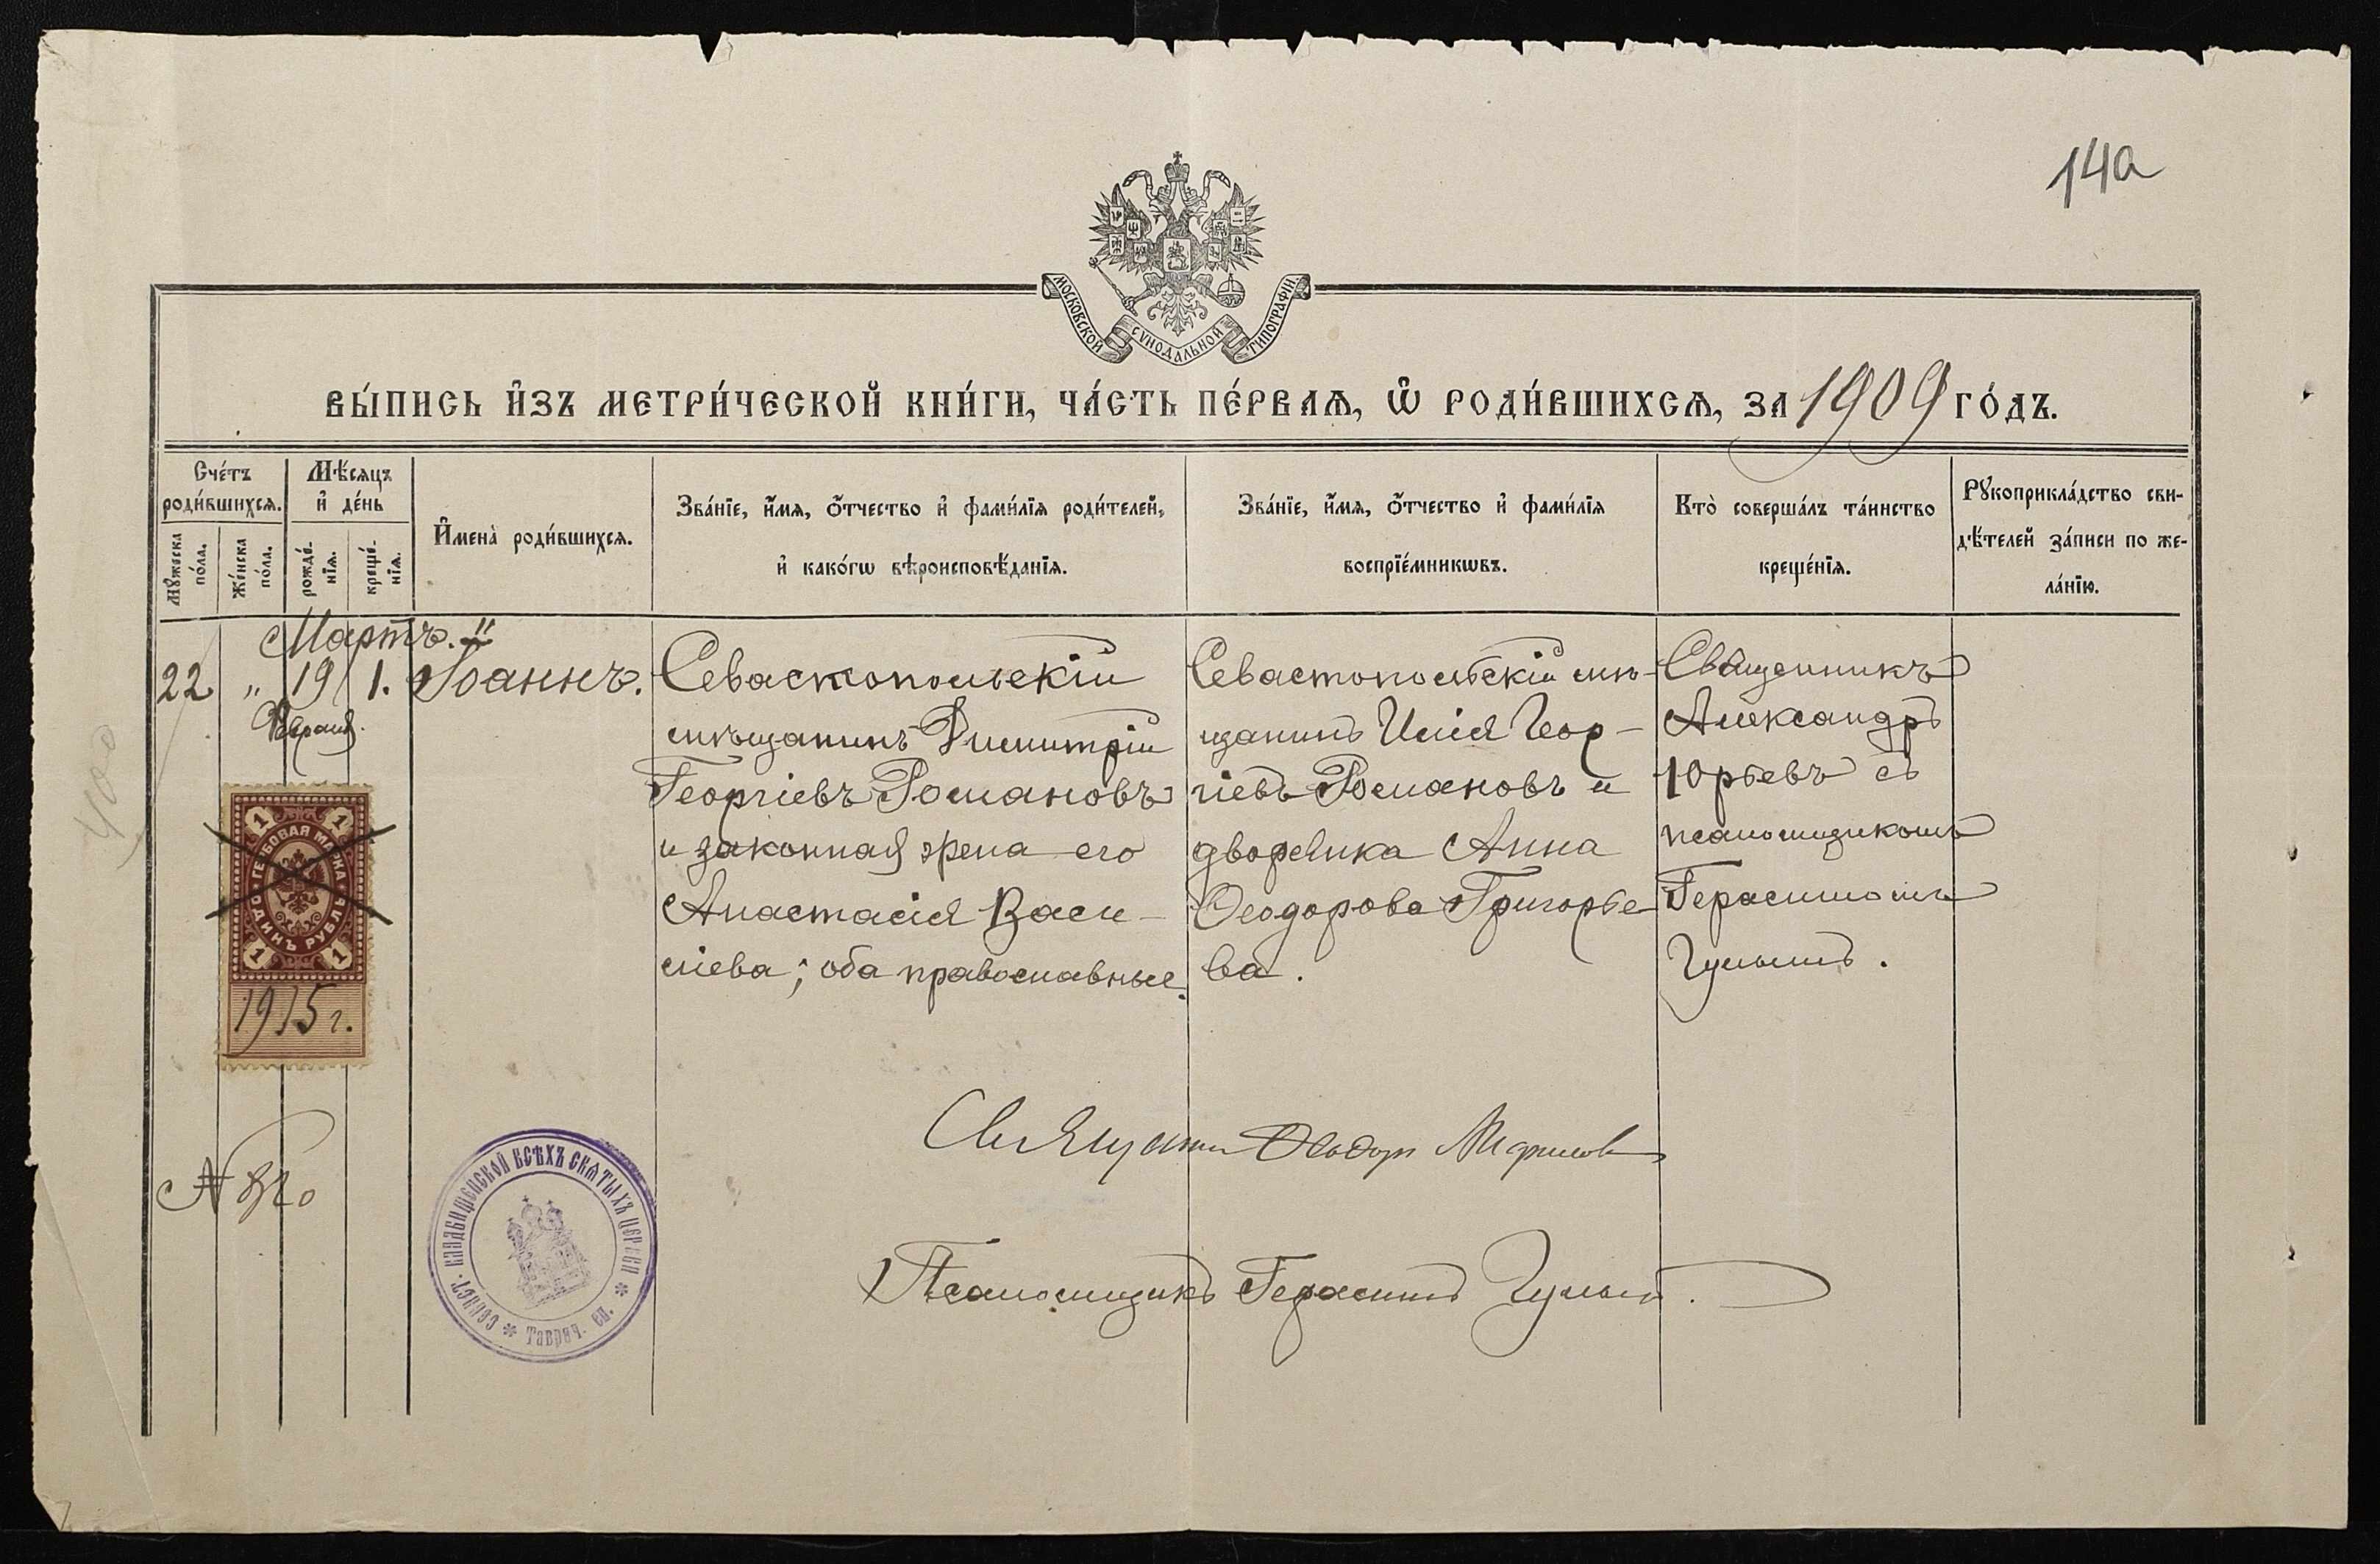 14а
МОСКОВСКОЙ СѴНОДАЛЬНОЙ ТИПОГРАФІИ.
ВЫ́ПИСЬ И҆ЗЪ МЕТРИ́ЧЕСКОЙ КНИ́ГИ, ЧА́СТЬ ПЕ́РВАѦ, Ѡ҆ РОДИ́ВШИХСѦ, ЗА 1909 ГО́ДЪ.
Сче́тъ
роди́вшихсѧ.
Мѣ́сѧцъ
и҆ де́нь
Мꙋ́жеска
по́ла.
Же́нска
по́ла.
рожде́-
нїѧ.
креще́-
нїѧ.
И҆мена̀ роди́вшихсѧ.
Зва́нїе, и҆́мѧ, ѻ҆́тчество и҆ фами́лїѧ роди́телей,
и҆ како́гѡ вѣроисповѣ́данїѧ.
Зва́нїе, и҆́мѧ, ѻ҆́тчество и҆ фами́лїѧ
воспрїе́мникѡвъ.
Кто̀ соверша́лъ та́инство
креще́нїѧ.
Рꙋкоприкла́дство сви-
дѣ́телей за́писи по же-
ла́нїю.
Мартъ.
22 " 19 1. Іоаннъ.
Февраля.
Севастопольскій
мѣщанинъ Димитрій
Георгіевъ Романовъ
и законная жена его
Анастасія Васи-
ліева; оба православные.
Севастопольскій мѣ-
щанинъ Илія Геор-
гіевъ Романовъ и
дворянка Анна
Ѳеодорова Григорье-
ва.
Священникъ
Александръ
Юрьевъ съ
псаломщикомъ
Герасимомъ
Гулымъ.
ГЕРБОВАЯ МАРКА
ОДИНЪ РУБЛЬ
1 1
1 1
1915 г.
400
№
Священник Ѳеодор
Псаломщикъ Герасимъ Гулый.
КЛАДБИЩЕНСКОЙ ВСѢХЪ СВЯТЫХЪ ЦЕРКВИ * Таврич. еп. * Севаст.